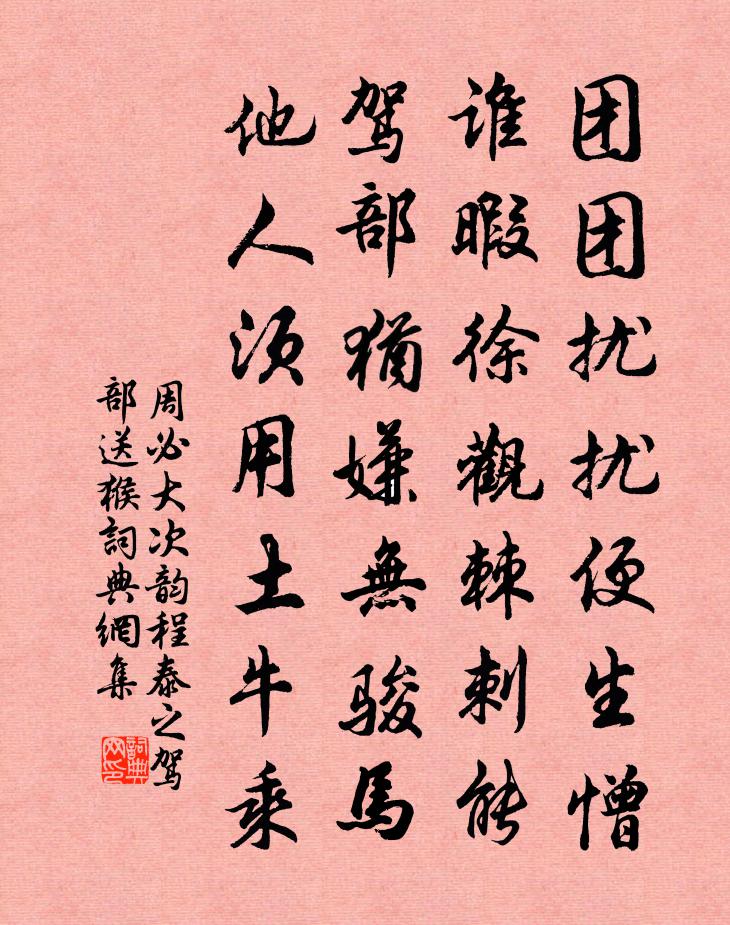 团团扰扰便生憎
谁暇徐觀棘刺能
驾部猶嫌無駿馬
他人须用土牛乘
周必大次韵程泰之驾
部送猴詞典網集
詞典网印